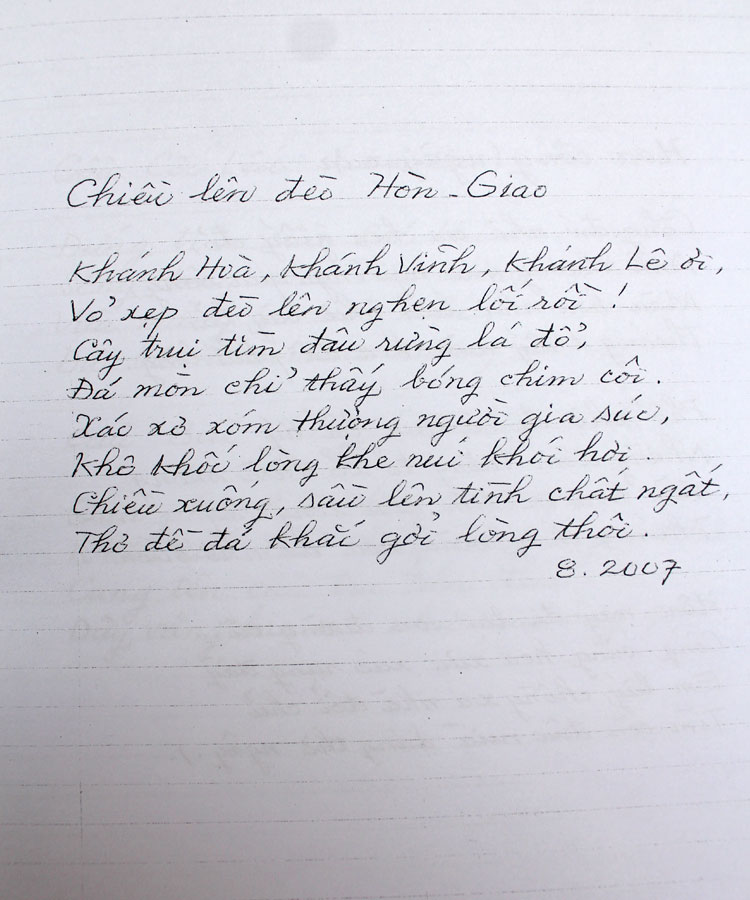 Chiều lên đèo Hòn-Giao
Khánh Hoà, Khánh Vĩnh, Khánh Lê ơi,
Vỏ xẹp đèo lên nghẹn lối rồi !
Cây trụi tìm đâu rừng lá đổ,
Đá mòn chỉ thấy bóng chim côi.
Xác xơ xóm thượng người gia súc,
Khô khốc lòng khe núi khói hơi.
Chiều xuống, sầu lên tình chất ngất,
Thơ đề đá khắc gởi lòng thôi.
8.2007